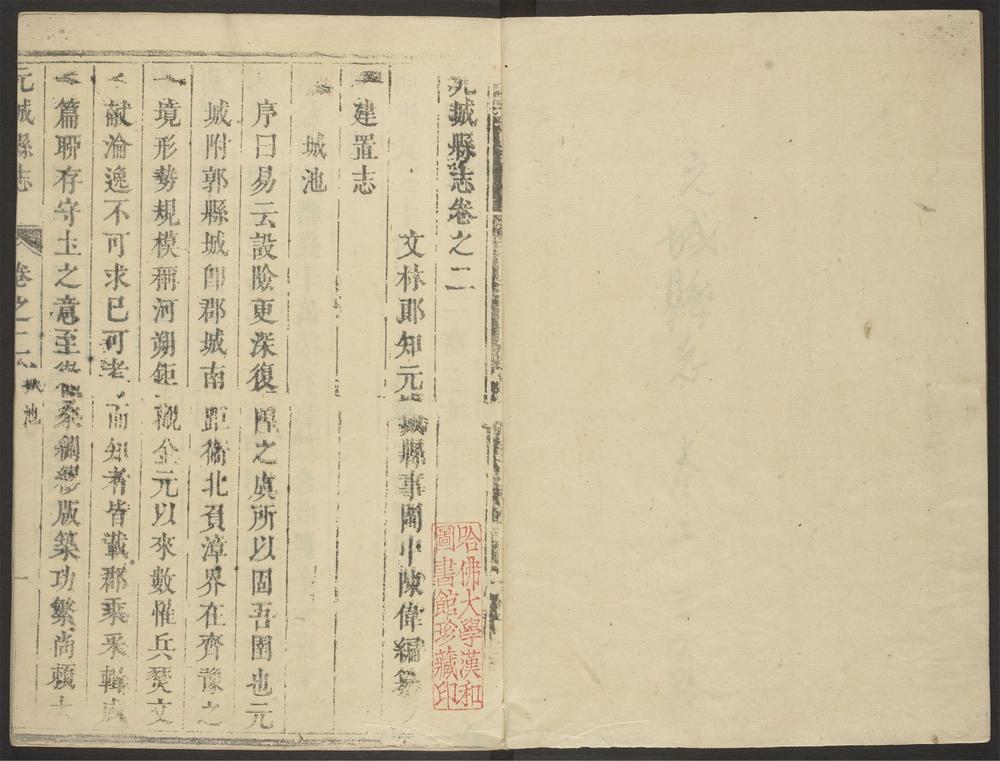 元城縣志卷之二
文林郎知元城縣事閩中陳偉編纂
建置志
城池
序曰易云設險更深復隍之虞所以固吾圉也元
城附郭縣城卽郡城南距衞北負漳界在齊豫之
境形勢規模稱河朔鉅觀金元以來數惟兵燹文
獻淪逸不可求已可考而知者皆載郡乘釆輯成
篇聊存守土之意至桑綢繆版築功繁尚賴
元城縣志
卷之二
城池
一
哈佛大學漢和
圖書館珍藏印
元城縣志